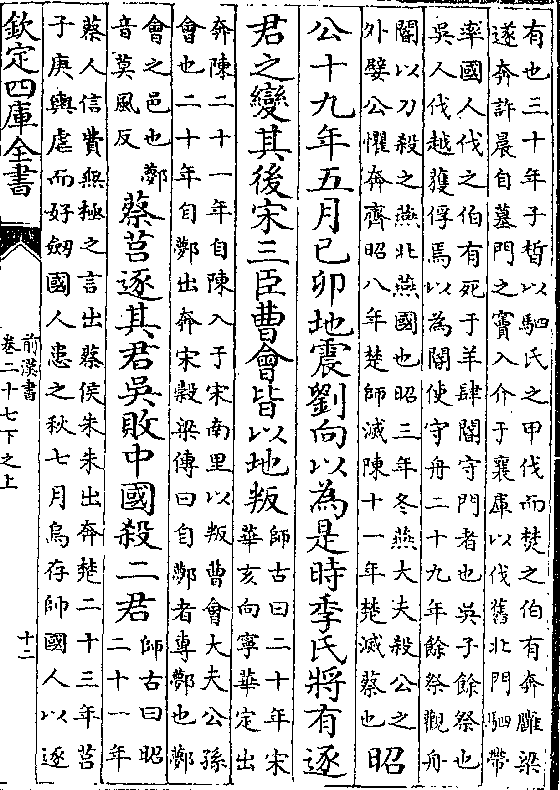 有也三十年子皙以駟氏之甲伐而焚之伯有奔雝梁
遂奔許晨自墓門之竇入介于襄庫以伐舊北門駟帶
率國人伐之伯有死于羊肆閽守門者也吳子餘祭也
吳人伐越獲俘焉以為閽使守舟二十九年餘祭觀舟
閽以刀殺之燕北燕國也昭三年冬燕大夫殺公之
外嬖公懼奔齊昭八年楚師滅陳十一年楚滅蔡也
昭
公十九年五月已卯地震劉向以為是時季氏將有逐
君之變其後宋三臣曹會皆以地叛
師古曰二十年宋
華亥向寧華定出
奔陳二十一年自陳入于宋南里以叛曹會大夫公孫
會也二十年自鄸出奔宋穀梁傳曰自鄸者專鄸也鄸
會之邑也鄸
音莫風反
蔡莒逐其君吳敗中國殺二君
師古曰昭
二十一年
蔡人信費無極之言出蔡侯朱朱出奔楚二十三年莒
子庚輿虐而好劒國人患之秋七月烏存帥國人以逐
欽定四庫全書
前漢書
卷二十七下之上
十二